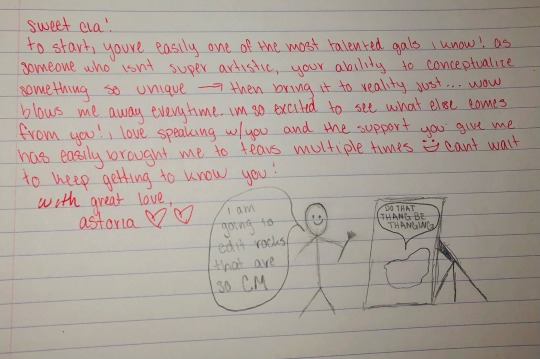 sweet cia!
to start, youre easily one of the most talented gals i know! as
someone who isnt super artistic, your ability to conceptualize
something so unique → then bring it to reality just... wow
blows me away everytime. im so excited to see what else comes
from you! i love speaking w/you and the support you give me
has easily brought me to tears multiple times :) cant wait
to keep getting to know you!
with great love,
astoria ♡ ♡
i am
going to
edit rocks
that are
so CM
DO THAT
THANG BE
THANGING